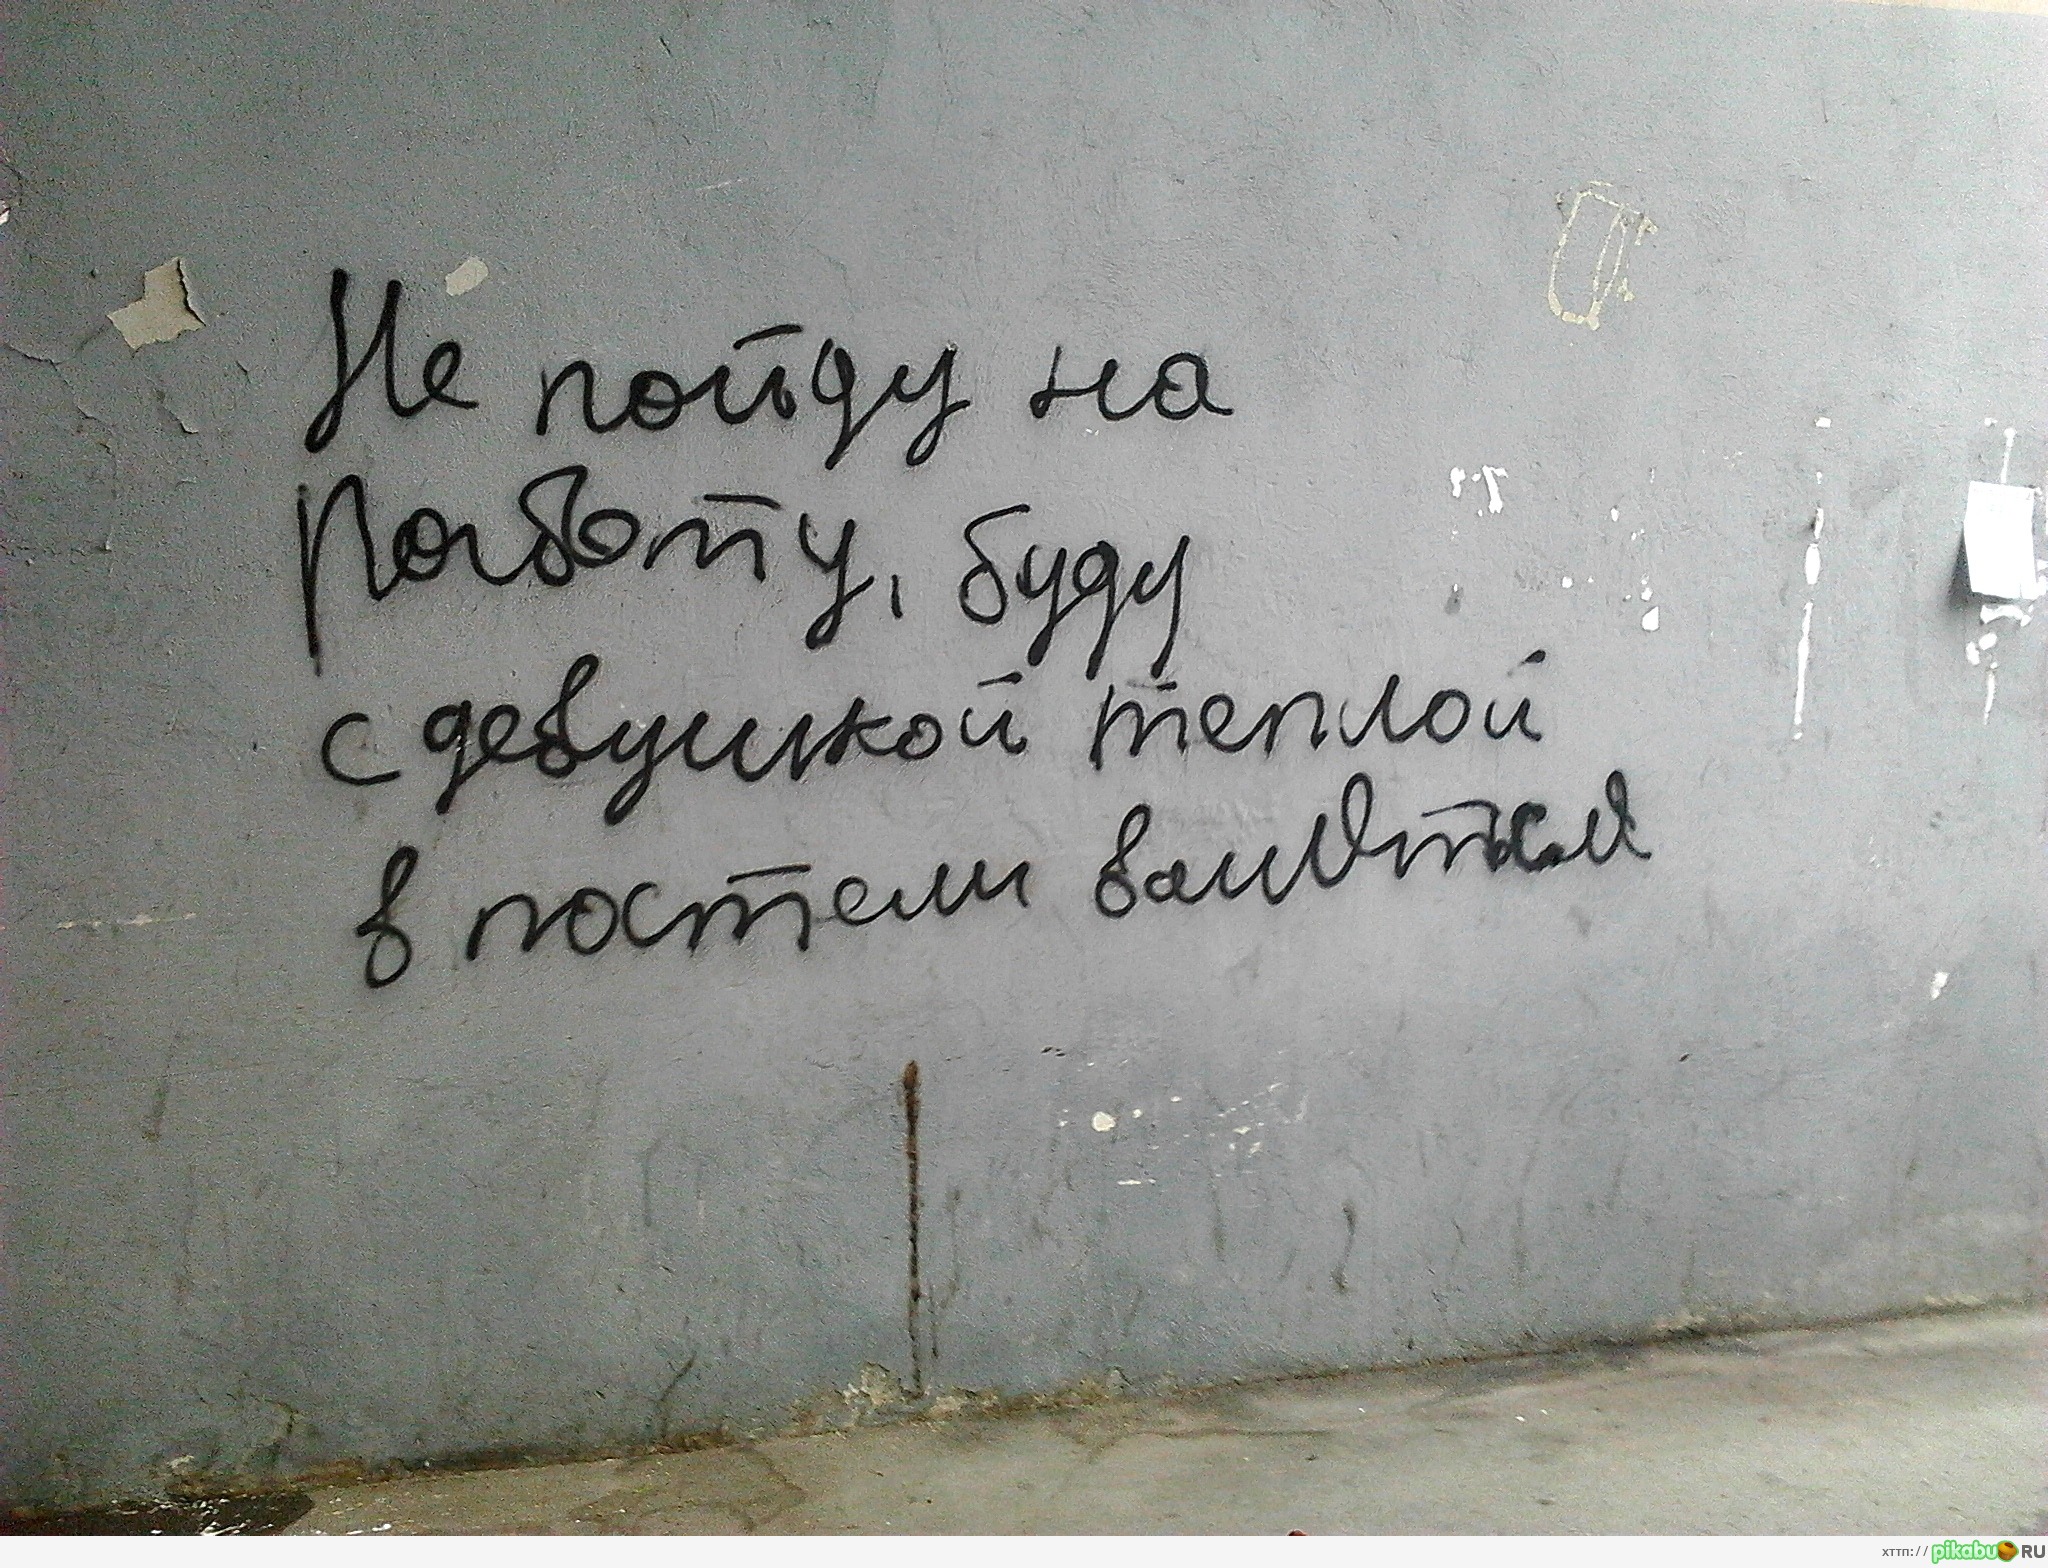 Не пойду на
работу, буду
с девушкой теплой
в постели валятся
хттп://pikabu.RU